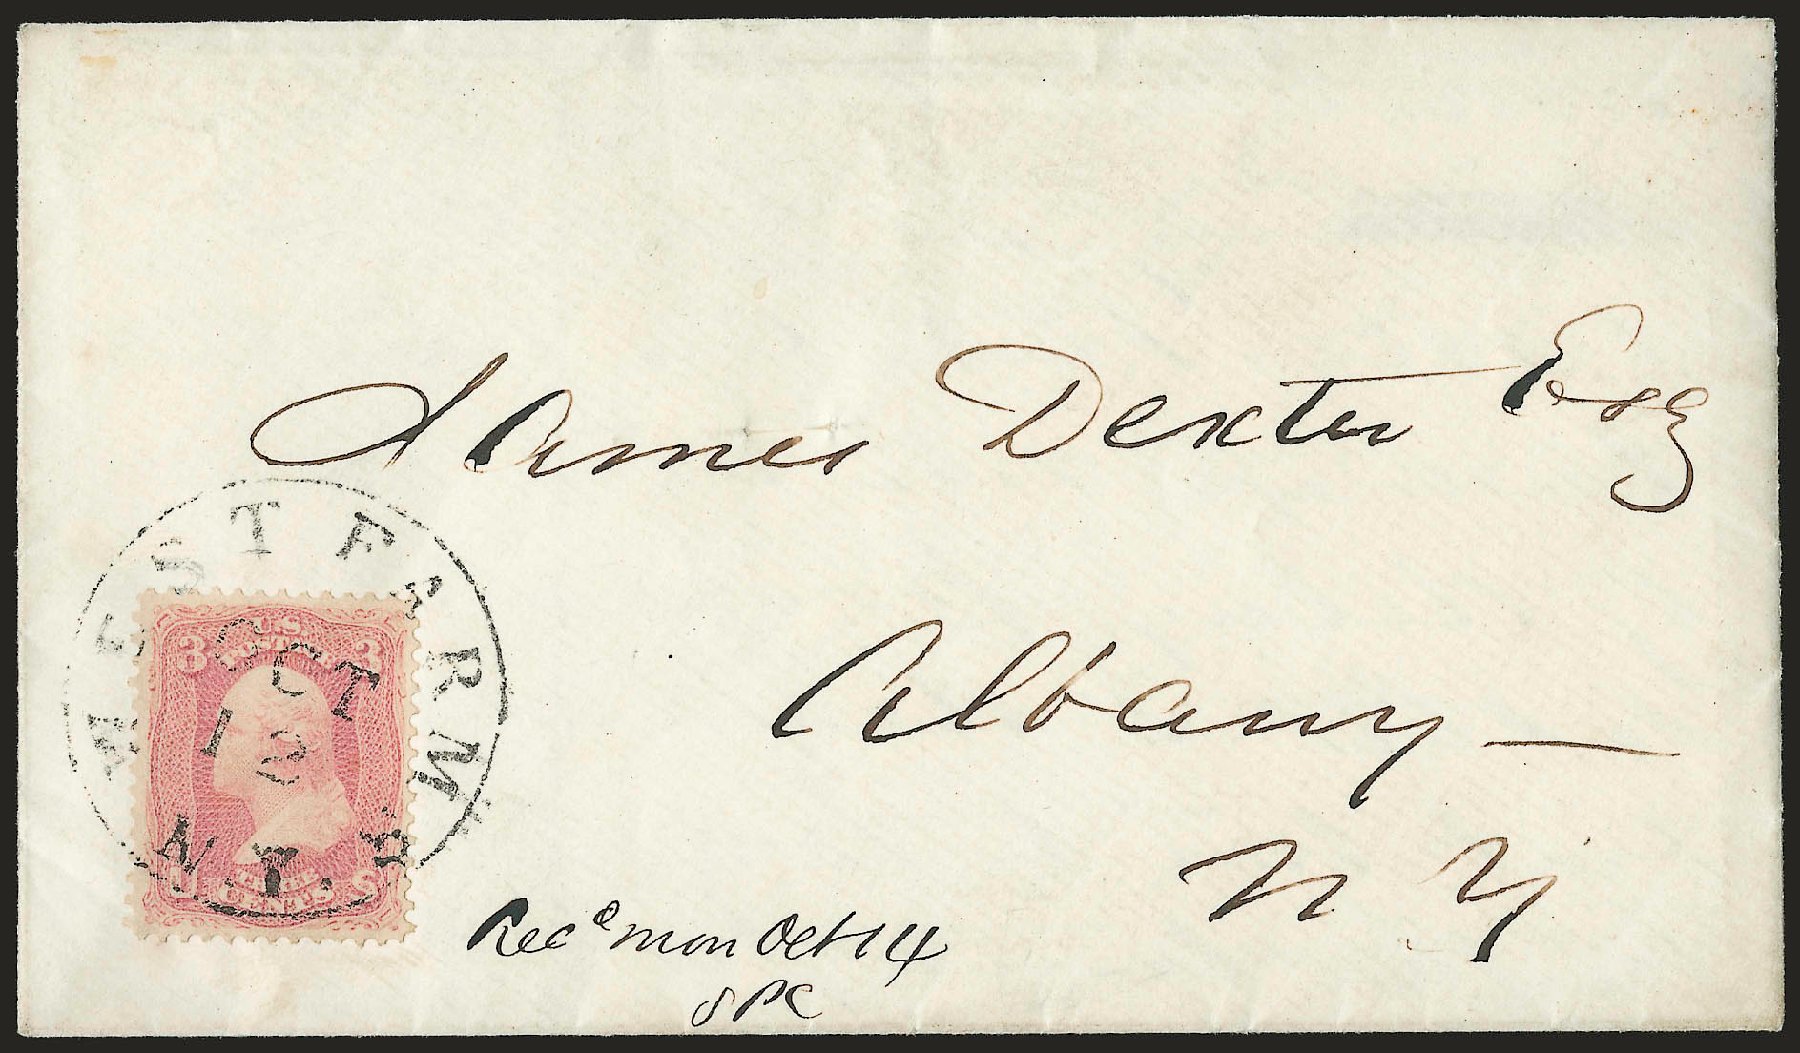 James Dexter Esq
Albany —
N Y
WEST FARMS
N.Y.
OCT
12
3 3
U.S.
POSTAGE
THREE
CENTS
Recd Mon Oct 14